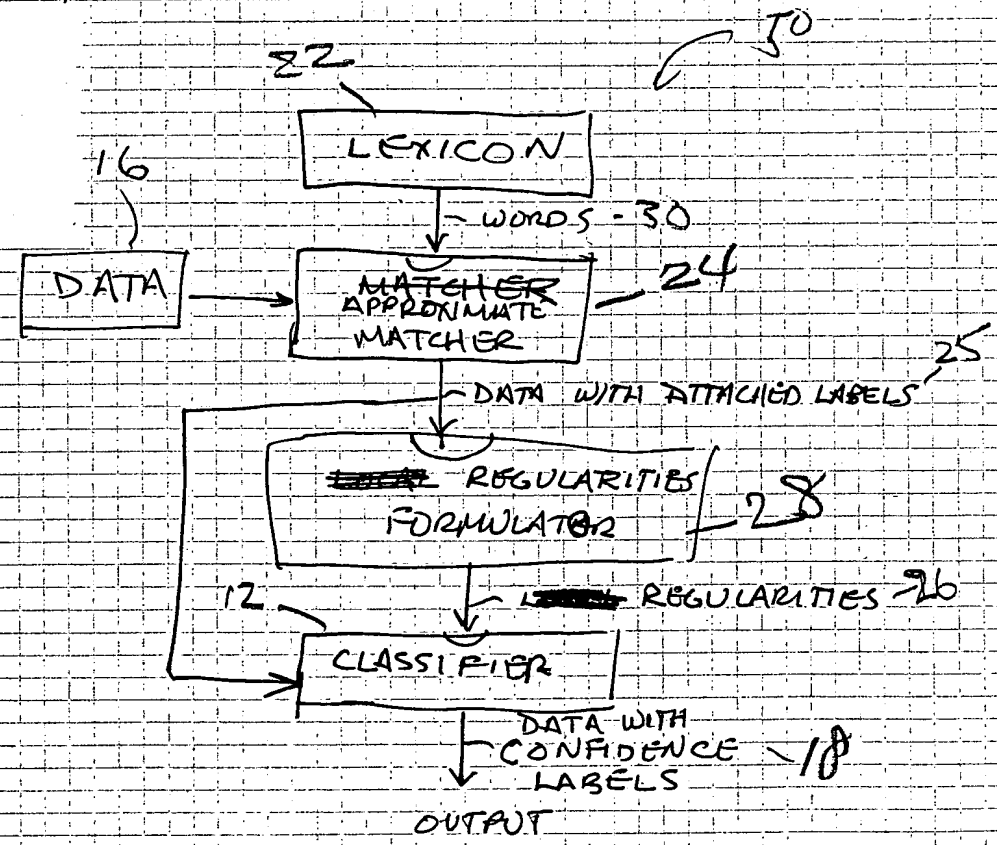 50
22
LEXICON
16
WORDS - 30
DATA
MATCHER
24
APPROXIMATE
MATCHER
25
DATA WITH ATTACHED LABELS
REGULARITIES
28
FORMULATOR
12
REGULARITIES 26
CLASSIFIER
DATA WITH
CONFIDENCE
18
LABELS
OUTPUT